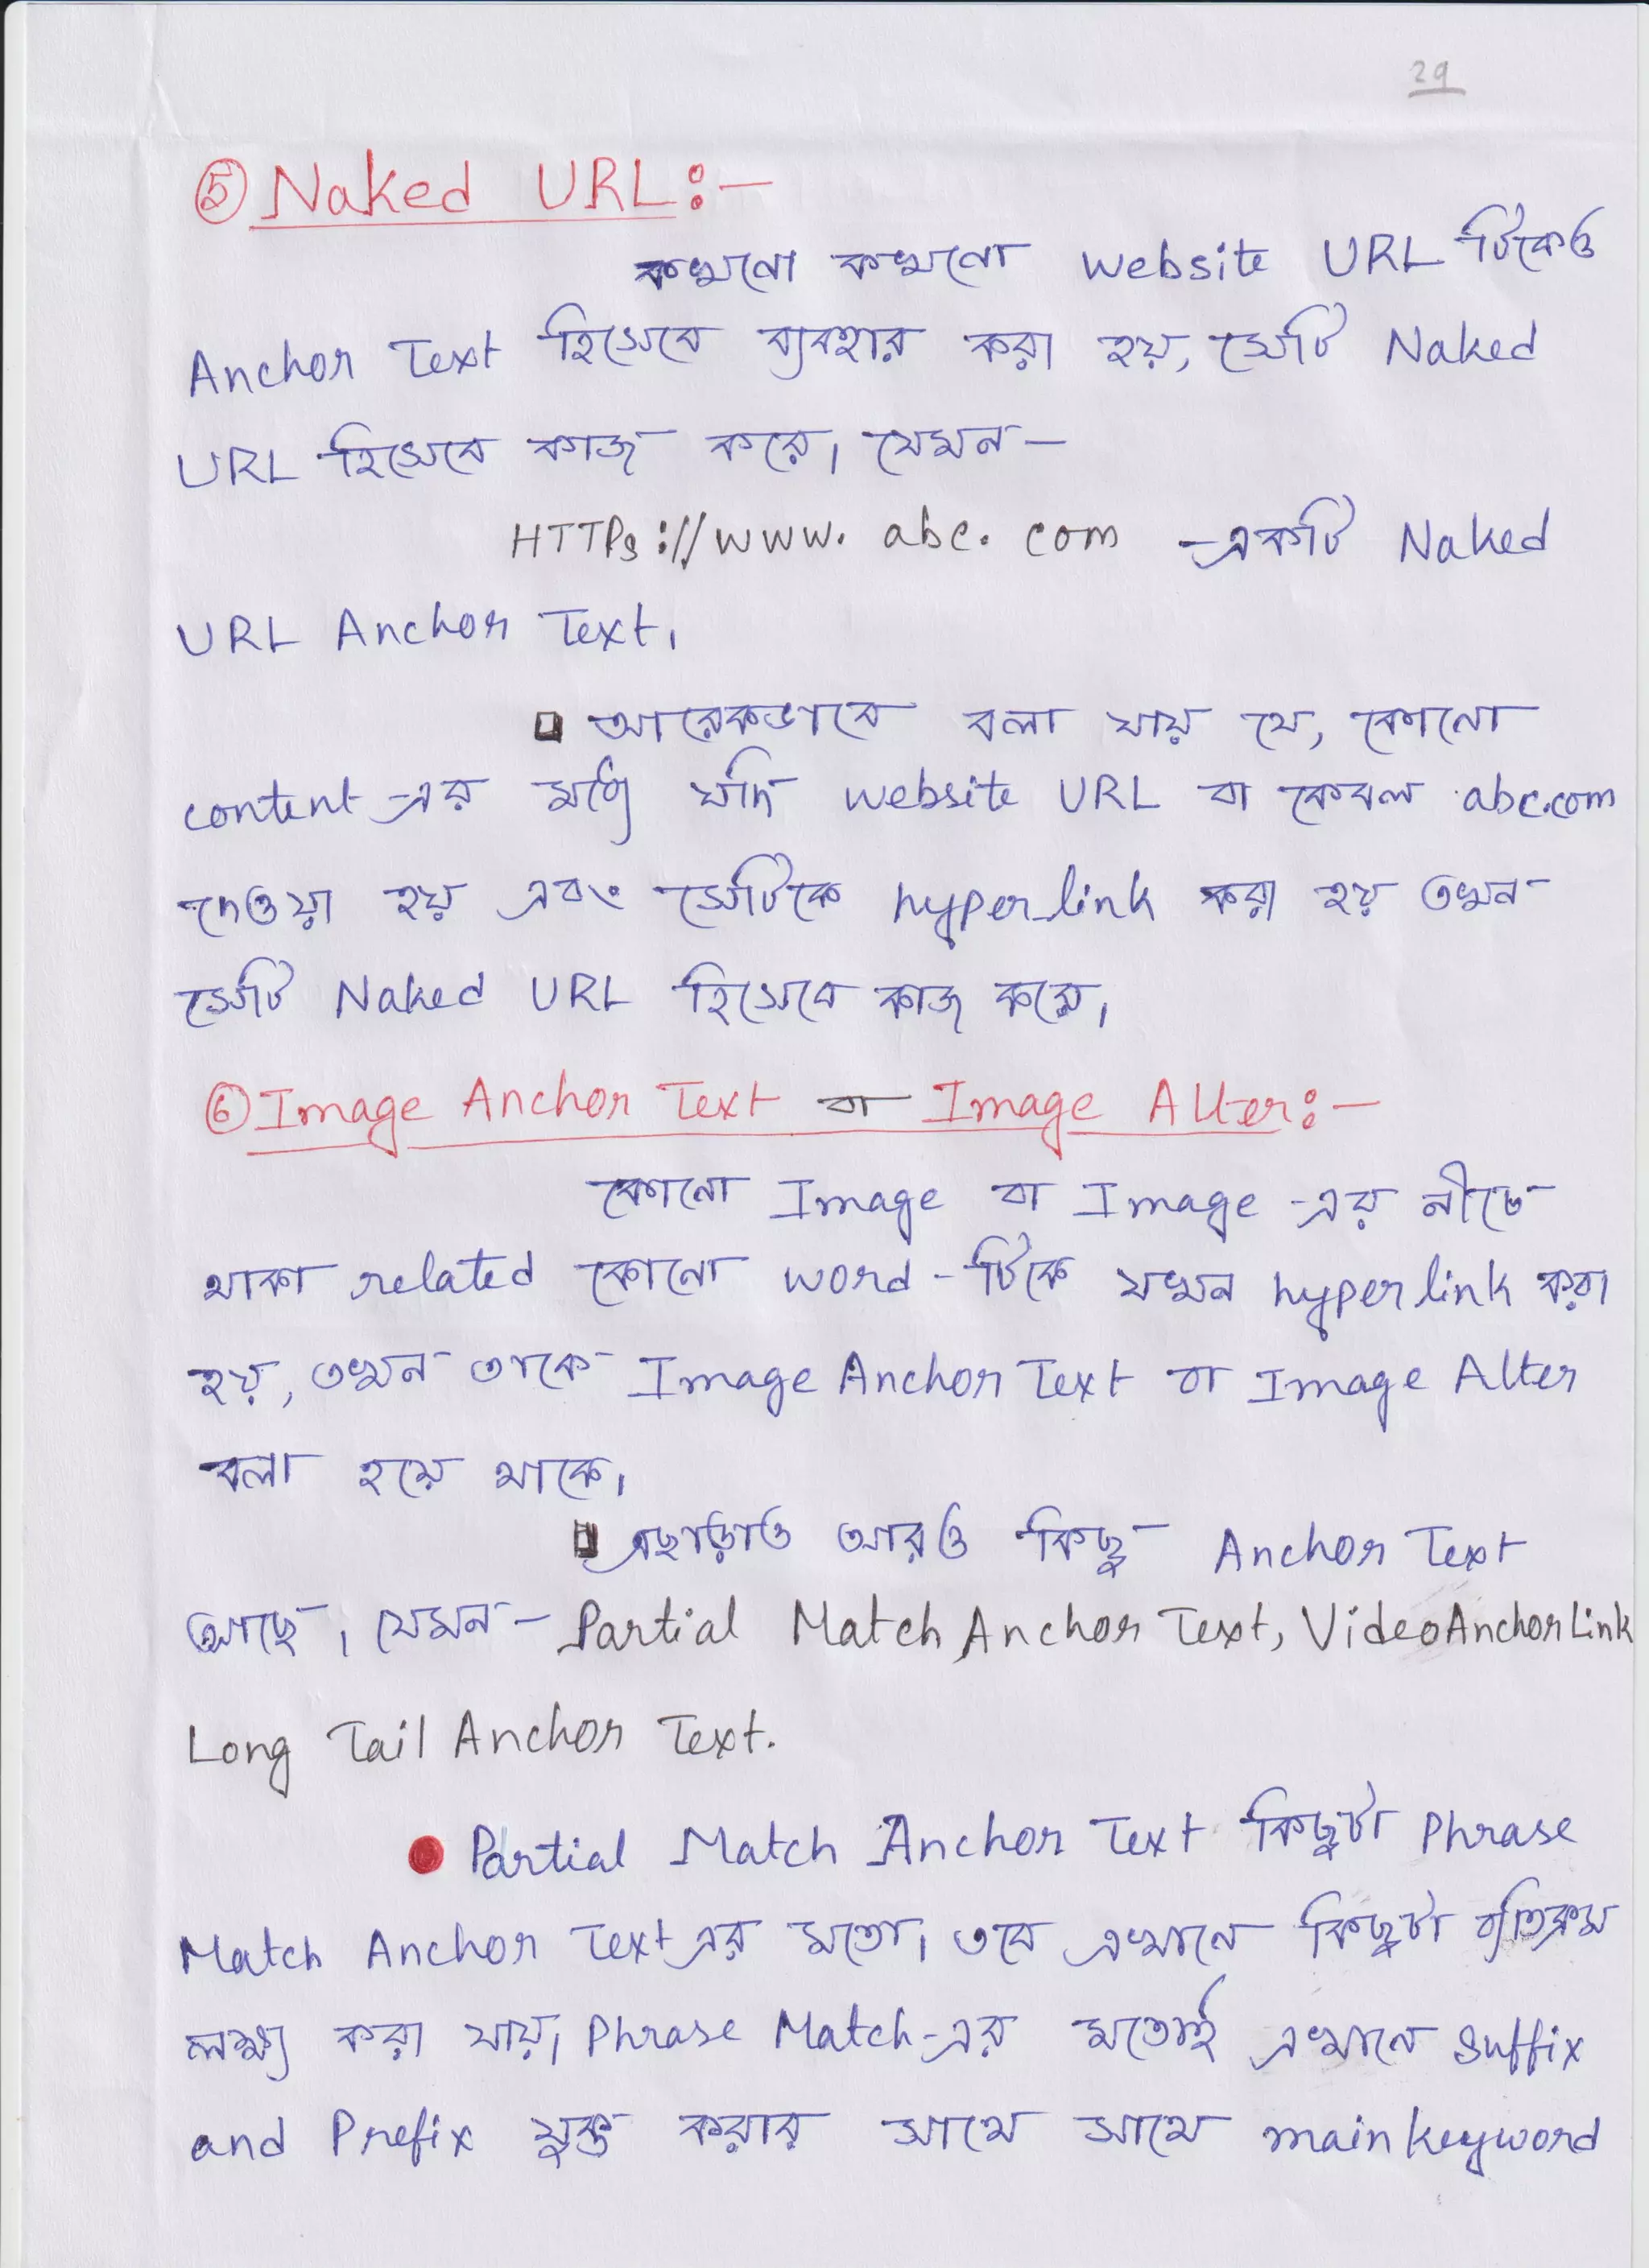 29
⑤ Naked URL:-
কখনো কখনো website URL টিকেও
Anchor Text হিসেবে ব্যবহার করা হয়, সেটি Naked
URL হিসেবে কাজ করে। যেমন-
HTTPs://www.abc.com -একটি Naked
URL Anchor Text।
আরেকভাবে বলা যায় যে, কোনো
content-এর মধ্যে যদি website URL বা কেবল abc.com
দেওয়া হয় এবং সেটিকে hyperlink করা হয় তখন
সেটি Naked URL হিসেবে কাজ করে।
⑥ Image Anchor Text বা Image Alter:-
কোনো Image বা Image-এর নীচে
থাকা related কোনো word-টিকে যখন hyperlink করা
হয়, তখন তাকে Image Anchor Text বা Image Alter
বলা হয়ে থাকে।
এছাড়াও আরও কিছু Anchor Text
আছে। যেমন- Partial Match Anchor Text, Video Anchor Link
Long Tail Anchor Text.
● Partial Match Anchor Text কিছুটা Phrase
Match Anchor Text এর মতো। তবে এখানে কিছুটা ব্যতিক্রম
লক্ষ্য করা যায়। Phrase Match-এর মতোই এখানে suffix
and Prefix যুক্ত করার সাথে সাথে main keyword